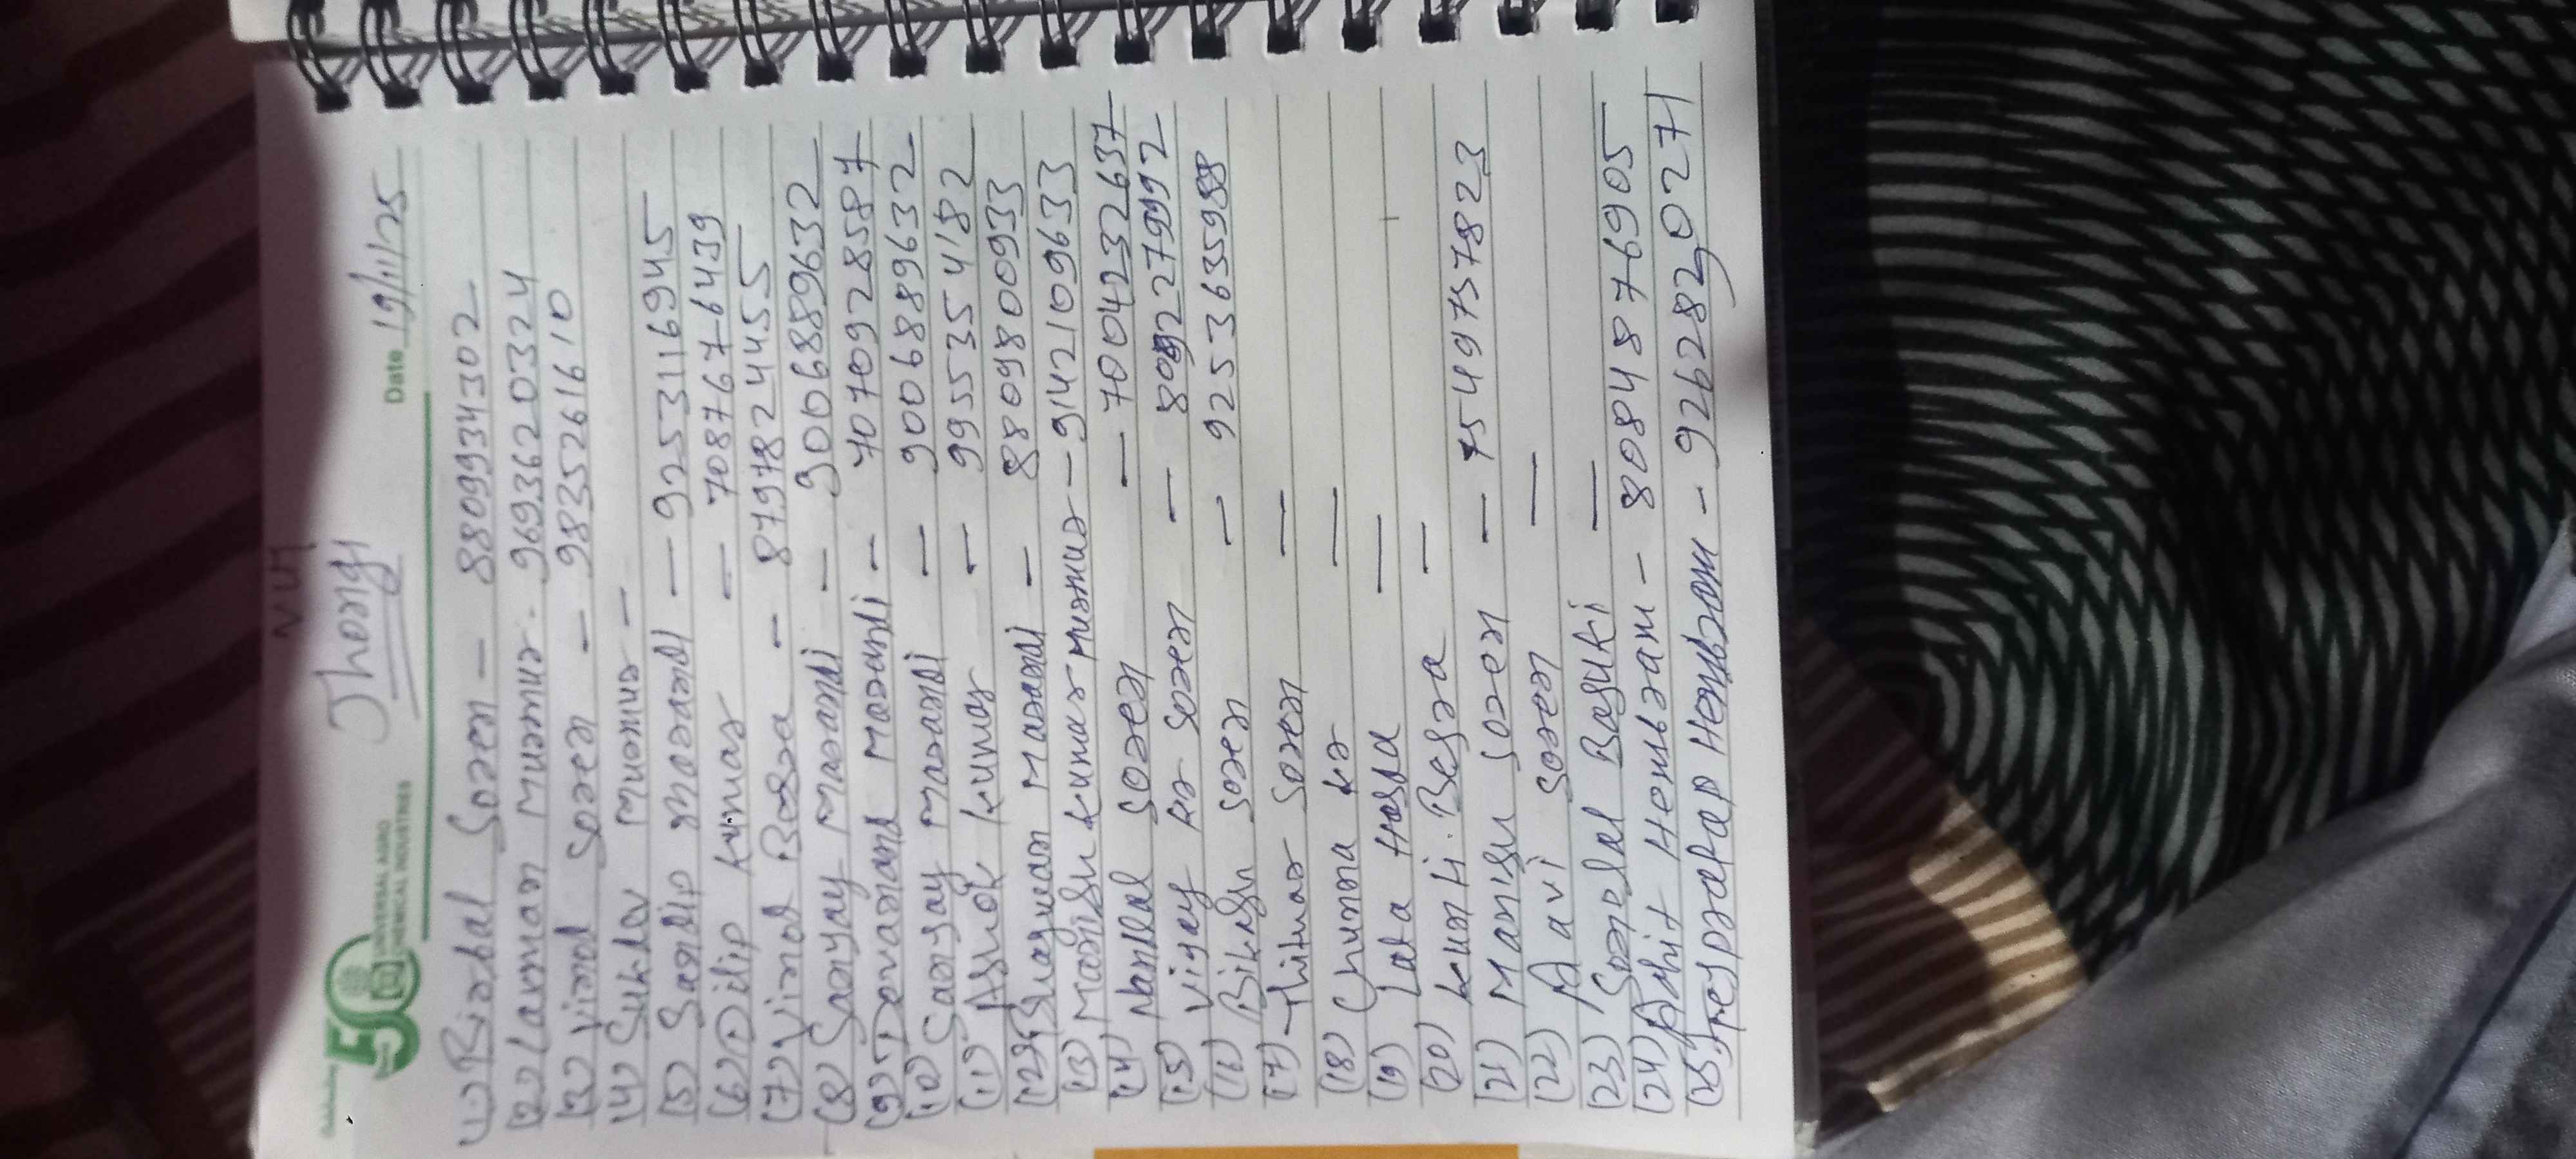 Jhongi
Date 19/11/25
50
UNIVERSAL AGRO
CHEMICAL INDUSTRIES
(1) Birbal Soren - 8809934302
(2) Laxman Murmur - 9693620324
(3) Virod Soren - 9835261610
(4) Sukdev Murmur -
(5) Sandip Marandi - 9253116945
(6) Dilip Kumar - 7087676439
(7) Vinod Basra - 8797824455
(8) Sanjay Marandi - 9006889632
(9) Devanand Marandi - 7070928587
(10) Sanjay Marandi - 9006889632
(11) Ashok Kumar - 9955354182
(12) Marandi - 8809800933
(13) Manish Kumar Murmur - 9142109633
(14) Nandlal Soren - 7004232637
(15) Vijay Kr Soren -
(16) Bikash Soren - 9253635988
(17) Soren -
(18) Chunna Kr -
(19) Lata Hasda -
(20) Kunti. Besra -
(21) Manish Soren - 7549757823
(22) Avi Soren -
(23) Somelal Baski -
(24) Hembram - 8084876905
(25) Tejpratap Hembram - 9262820271